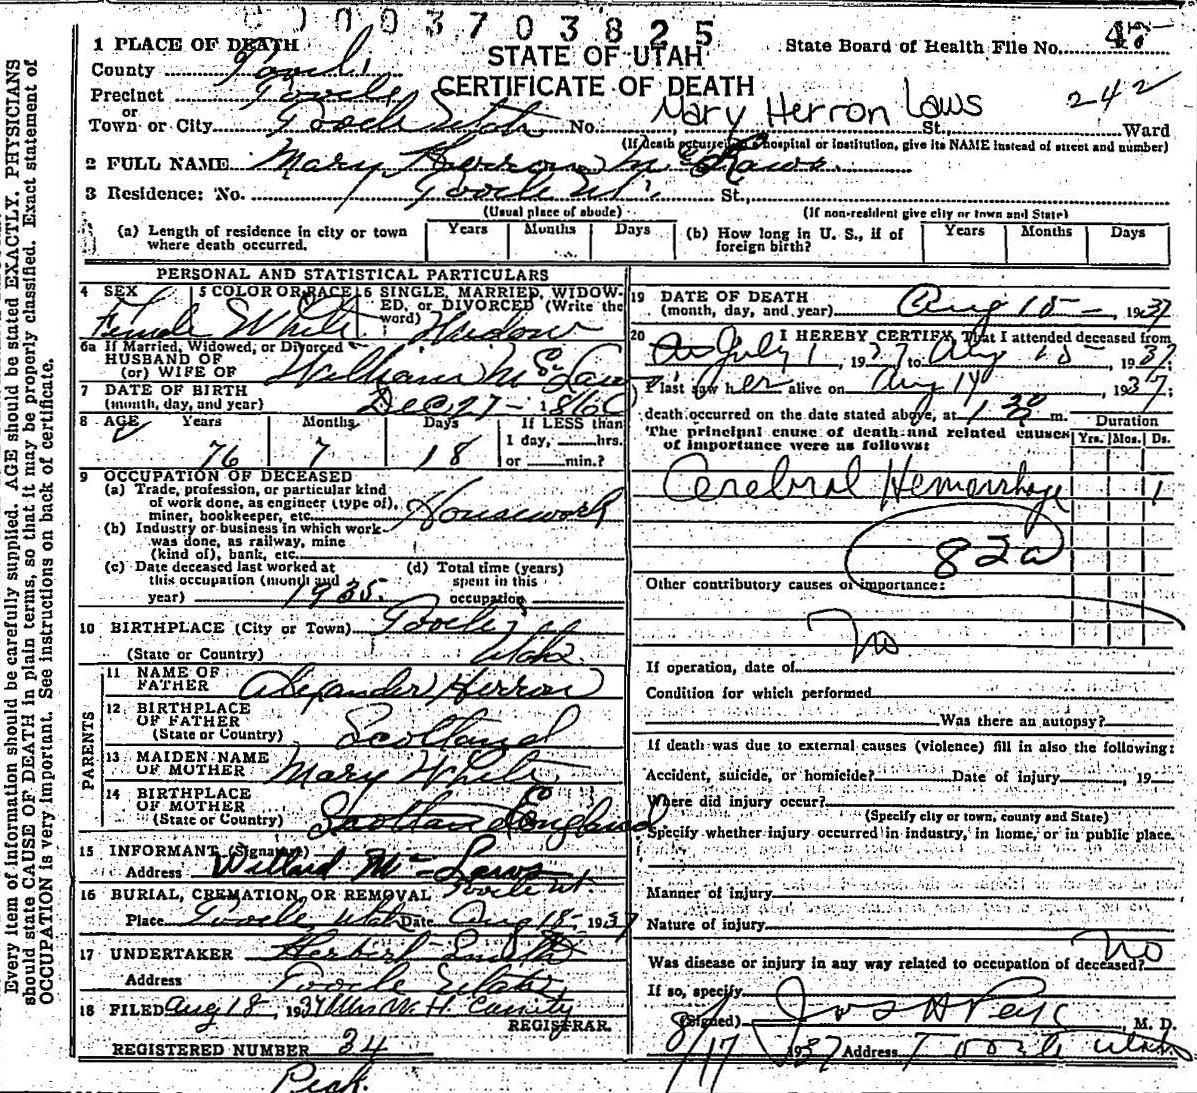 0003703825
STATE OF UTAH
CERTIFICATE OF DEATH
State Board of Health File No. 47
242
Every item of information should be carefully supplied. AGE should be stated EXACTLY. PHYSICIANS
should state CAUSE OF DEATH in plain terms, so that it may be properly classified. Exact statement of
OCCUPATION is very important. See instructions on back of certificate.
1 PLACE OF DEATH
County Tooele
Precinct Tooele
or
Town or City Tooele Utah No. Mary Herron Laws St., Ward
(If death occurred in a hospital or institution, give its NAME instead of street and number)
2 FULL NAME Mary Herron Mc Laws
3 Residence: No. Tooele Ut. St.,
(Usual place of abode) (If non-resident give city or town and State)
(a) Length of residence in city or town where death occurred. Years Months Days
(b) How long in U. S., if of foreign birth? Years Months Days
PERSONAL AND STATISTICAL PARTICULARS
4 SEX Female
5 COLOR OR RACE White
6 SINGLE, MARRIED, WIDOWED, or DIVORCED (Write the word) Widow
6a If Married, Widowed, or Divorced
HUSBAND OF
(or) WIFE OF William Mc Laws
7 DATE OF BIRTH
(month, day, and year) Dec 27 - 1860
8 AGE Years 76 Months 7 Days 18 If LESS than 1 day, hrs. or min.?
9 OCCUPATION OF DECEASED
(a) Trade, profession, or particular kind
of work done, as engineer (type of),
miner, bookkeeper, etc. Housework
(b) Industry or business in which work
was done, as railway, mine
(kind of), bank, etc.
(c) Date deceased last worked at
this occupation (month and
year) 1935.
(d) Total time (years)
spent in this
occupation
10 BIRTHPLACE (City or Town) Tooele
(State or Country) Utah.
PARENTS
11 NAME OF
FATHER Alexander Herron
12 BIRTHPLACE
OF FATHER
(State or Country) Scotland
13 MAIDEN NAME
OF MOTHER Mary White
14 BIRTHPLACE
OF MOTHER
(State or Country) Scotland England
15 INFORMANT (Signature) Willard Mc Laws
Address Tooele Ut
16 BURIAL, CREMATION, OR REMOVAL
Place Tooele Utah Date Aug 18 - 1937
17 UNDERTAKER Herbert Smith
Address Tooele Utah
18 FILED Aug 18, 1937 Mrs W. H.
REGISTRAR.
REGISTERED NUMBER 34
Peak.
19 DATE OF DEATH
(month, day, and year) Aug 15 -, 1937
20 I HEREBY CERTIFY, That I attended deceased from
July 1, 1937 to Aug 15 - 1937.
I last saw her alive on Aug 14, 1937;
death occurred on the date stated above, at 1 30 a m.
The principal cause of death and related causes
of importance were as follows:
Duration
Yrs. Mos. Ds.
Cerebral Hemorrhage 1
82a
Other contributory causes of importance:
No
If operation, date of
Condition for which performed
Was there an autopsy?
If death was due to external causes (violence) fill in also the following:
Accident, suicide, or homicide? Date of injury, 19
Where did injury occur?
(Specify city or town, county and State)
Specify whether injury occurred in industry, in home, or in public place.
Manner of injury
Nature of injury
Was disease or injury in any way related to occupation of deceased? No
If so, specify
(Signed) Jos H Peck, M. D.
8/17 1937 Address Tooele Utah